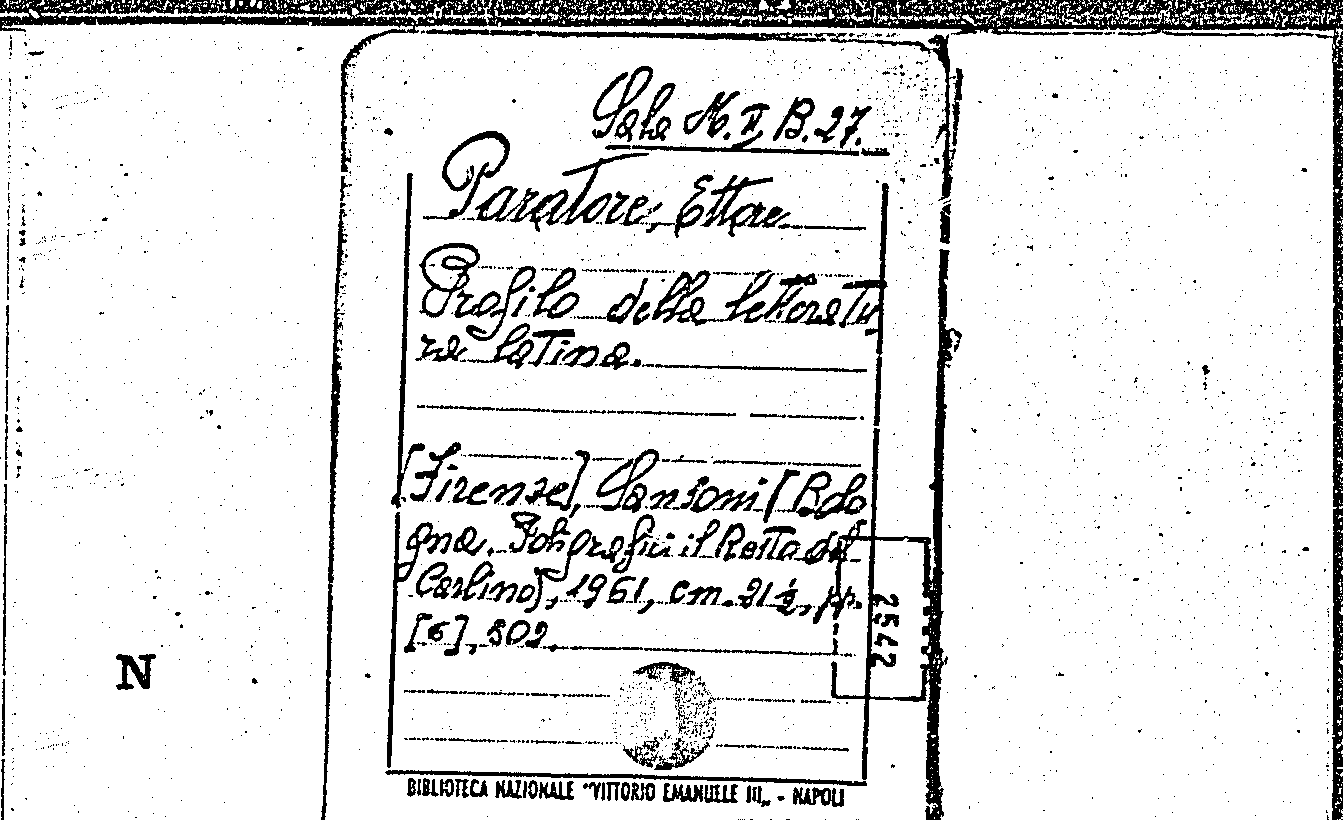 Sala M. II, B. 27.
Paratore, Ettore.
Profilo della letteratu
ra latina.
[Firenze], Sansoni [Bolo
gna. Poligrafici il Resto del
Carlino], 1961, cm. 21½, pp.
[6], 502.
2542
N
BIBLIOTECA NAZIONALE "VITTORIO EMANUELE III„ - NAPOLI